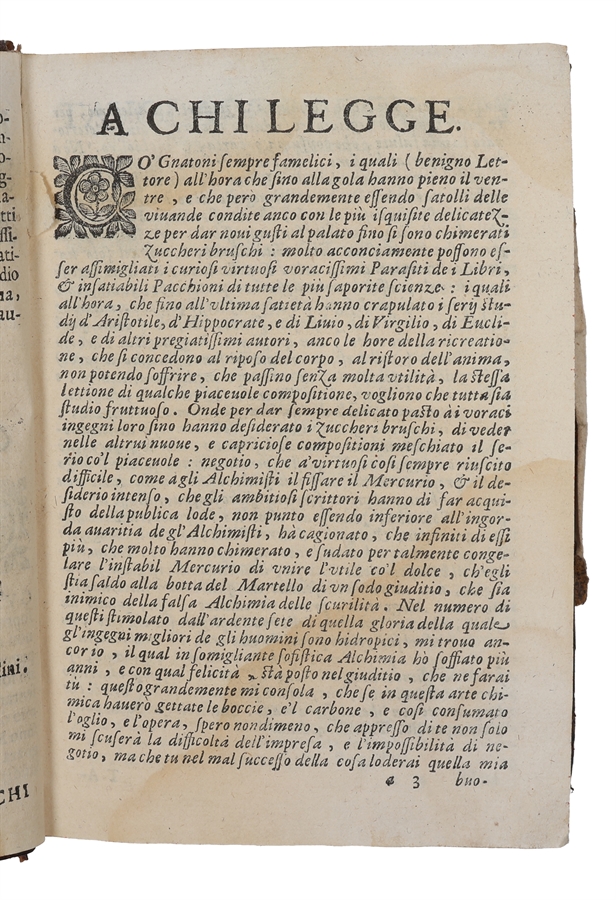 A CHI LEGGE.
CO' Gnatoni ſempre famelici, i quali (benigno Let-
tore) all'hora che ſino alla gola hanno pieno il ven-
tre, e che però grandemente eſſendo ſatolli delle
viuande condite anco con le più iſquiſite delicatez-
ze per dar noui guſti al palato fino ſi ſono chimerati
Zuccheri bruſchi: molto acconciamente poſſono eſ-
ſer aſſimigliati i curioſi virtuoſi voraciſſimi Paraſiti de i Libri,
& inſatiabili Pacchioni di tutte le più ſaporite ſcienze: i quali
all'hora, che fino all'vltima ſatietà hanno crapulato i ſerij ſtu-
dij d'Ariſtotile, d'Hippocrate, e di Liuio, di Virgilio, di Eucli-
de, e di altri pregiatiſſimi autori, anco le hore della ricreatio-
ne, che ſi concedono al ripoſo del corpo, al riſtoro dell'anima,
non potendo ſoffrire, che paſſino ſenza molta vtilità, la ſteſſa
lettione di qualche piaceuole compoſitione, vogliono che tutta ſia
ſtudio fruttuoſo. Onde per dar ſempre delicato paſto à i voraci
ingegni loro ſino hanno deſiderato i zuccheri bruſchi, di veder
nelle altrui nuoue, e capricioſe compoſitioni meſchiato il ſe-
rio co'l piaceuole: negotio, che a' virtuoſi coſi ſempre riuſcito
difficile, come a gli Alchimiſti il fiſſare il Mercurio, & il de-
ſiderio intenſo, che gli ambitioſi ſcrittori hanno di far acqui-
ſto della publica lode, non punto eſſendo inferiore all'ingor-
da auaritia de gl'Alchimiſti, hà cagionato, che infiniti di eſſi
più, che molto hanno chimerato, e ſudato per talmente conge-
lare l'inſtabil Mercurio di vnire l'vtile co'l dolce, ch'egli
ſtia ſaldo alla botta del Martello di vn ſodo giuditio, che ſia
inimico della falſa Alchimia delle ſcurilità. Nel numero di
queſti ſtimolato dall'ardente ſete di quella gloria della quale
gl'ingegni migliori de gli huomini ſono hidropici, mi trouo an-
cor io, il qual in ſomigliante ſofiſtica Alchimia hò ſoffiato più
anni, e con qual felicità, ſtà poſto nel giuditio, che ne farai
tù: queſto grandemente mi conſola, che ſe in queſta arte chi-
mica hauerò gettate le boccie, e'l carbone, e coſi conſumato
l'oglio, e l'opera, ſpero nondimeno, che appreſſo di te non ſolo
mi ſcuſerà la difficoltà dell'impreſa, e l'impoſſibilità di ne-
gotio, ma che tu nel mal ſucceſſo della coſa loderai quella mia
a 3 buo-